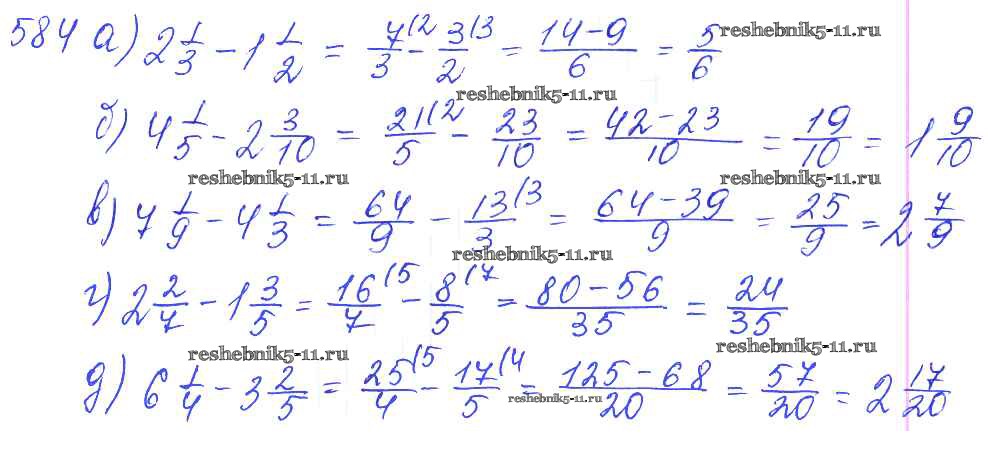 584 а) 2 1/3 - 1 1/2 = 7(2/3 - 3(3/2 = 14-9/6 = 5/6
reshebnik5-11.ru
reshebnik5-11.ru
б) 4 1/5 - 2 3/10 = 21(2/5 - 23/10 = 42-23/10 = 19/10 = 1 9/10
reshebnik5-11.ru
reshebnik5-11.ru
в) 7 1/9 - 4 1/3 = 64/9 - 13(3/3 = 64-39/9 = 25/9 = 2 7/9
reshebnik5-11.ru
г) 2 2/7 - 1 3/5 = 16(5/7 - 8(7/5 = 80-56/35 = 24/35
reshebnik5-11.ru
reshebnik5-11.ru
д) 6 1/4 - 3 2/5 = 25(5/4 - 17(4/5 = 125-68/20 = 57/20 = 2 17/20
reshebnik5-11.ru